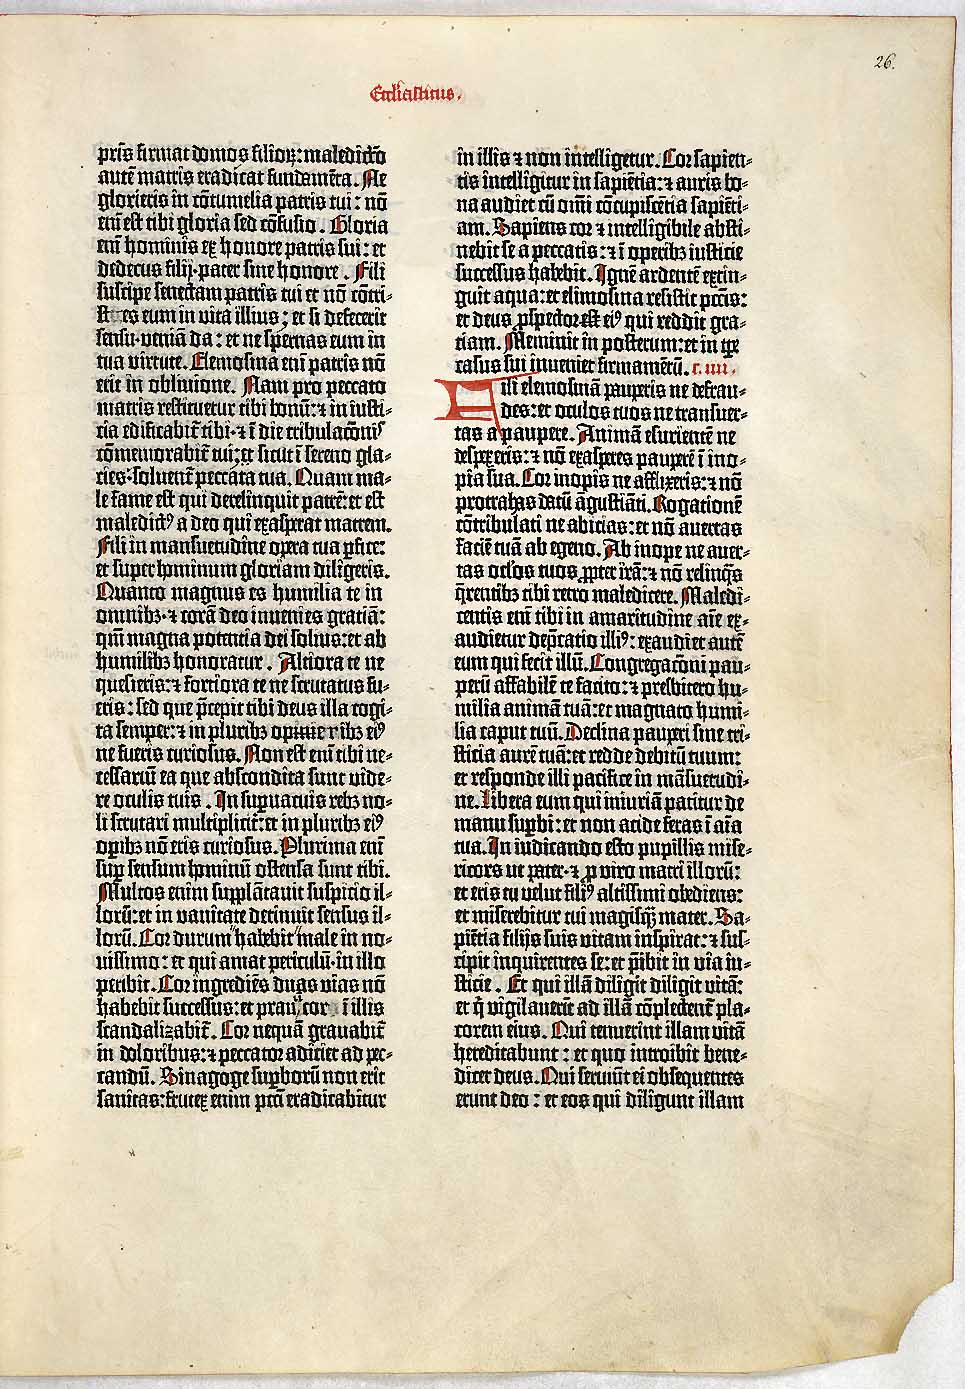 26.
Eccl'iasticus.
pris firmat domos filioꝝ: maledictō
autē matris eradicat fundamēta. Ne
glorieris in cōtumelia patris tui: nō
eni est tibi gloria sed cōfusio. Gloria
eni hominis ex honore patris sui: et
dedecus filij· pater sine honore. Fili
suscipe senectam patris tui et nō cōtri-
stes eum in vita illius; et si defecerit
sensu· veniā da: et ne spernas eum in
tua virtute. Elemosina eni patris nō
erit in oblivione. Nam pro peccato
matris restituetur tibi bonū: ⁊ in iusti-
cia edificabit̄ tibi· ⁊ ī die tribulacōnis
cōmemorabit̄ tui: et sicut ī sereno gla-
cies· solvent̄ peccata tua. Quam ma-
le fame est qui derelinquit patrē: et est
maledictꝰ a deo qui exasperat matrem.
Fili in mansuetudine opera tua ꝑfice:
et super hominum gloriam diligeris.
Quanto magnus es humilia te in
omnibꝫ· ⁊ corā deo invenies gratiā:
qm̄ magna potentia dei solius: et ab
humilibꝫ honoratur. Altiora te ne
quesieris: ⁊ fortiora te ne scrutatus fu-
eris: sed que p̄cepit tibi deus illa cogi-
ta semper: ⁊ in pluribꝫ eiꝰ
ne fueris curiosus. Non est eni tibi ne-
cessariū ea que abscondita sunt vide-
re oculis tuis. In suꝑvacuis rebꝫ no-
li scrutari multiplicit̄: et in pluribꝫ eiꝰ
oꝑibꝫ nō eris curiosus. Plurima eni
suꝑ sensum hominū ostensa sunt tibi.
Multos enim supplātavit suspicio il-
lorū: et in vanitate detinuit sensus il-
lorū. Cor durum habebit male in no-
vissimo: et qui amat periculū· in illo
peribit. Cor ingrediēs duas vias nō
habebit successus: et pravū cor ī illis
scandalizabit̄. Cor nequā gravabit̄
in doloribus: ⁊ peccator adiciet ad pec-
candū. Sinagoge suꝑborū non erit
sanitas: frutex enim pctī eradicabitur
in illis ⁊ non intelligetur. Cor sapien-
tis intelligitur in sapiētia: ⁊ auris bo-
na audiet cū omī cōcupiscētia sapiēti-
am. Sapiens cor ⁊ intelligibile absti-
nebit se a peccatis: ⁊ ī operibꝫ iusticie
successus habebit. Ignē ardentē extin-
guit aqua: et elimosina resistit pctīs:
et deus ꝓspector est eiꝰ qui reddit gra-
tiam. Meminit in posterum: et in tꝑe
casus sui inveniet firmamētū. c. iiii.
Fili elemosinā pauperis ne defrau-
des: et oculos tuos ne transver-
tas a paupere. Animā esurientē ne
despexeris: ⁊ nō exasperes pauperē ī ino-
pia sua. Cor inopis ne afflixeris: ⁊ nō
protrahas datū āgustiāti. Rogationē
cōtribulati ne abicias: et nō avertas
faciē tuā ab egeno. Ab inope ne aver-
tas oc̄los tuos ꝓpter irā: ⁊ nō relinq̄s
q̄rentibꝫ tibi retro maledicere. Maledi-
centis eni tibi in amaritudine aīe ex-
audietur dep̄catio illiꝰ: exaudiet autē
eum qui fecit illū. Congregacōni pau-
perū affabilē te facito: ⁊ presbitero hu-
milia animā tuā: et magnato humi-
lia caput tuū. Declina pauperi sine tri-
sticia aurē tuā: et redde debitū tuum:
et responde illi pacifice in māsuetudi-
ne. Libera eum qui iniuriā patitur de
manu suꝑbi: et non acide feras ī aīa
tua. In iudicando esto pupillis mise-
ricors ut pater· ⁊ ꝓ viro matri illorū:
et eris tu velut filiꝰ altissimi obediens:
et miserebitur tui magisq̄ mater. Sa-
piētia filijs suis vitam inspirat: ⁊ sus-
cipit inquirentes se: et p̄ibit in via iu-
sticie. Et qui illā diligit diligit vitā:
et q̄ vigilaverit ad illā cōplectent̄ pla-
corem eius. Qui tenuerint illam vitā
hereditabunt: et quo introibit bene-
dicet deus. Qui serviūt ei obsequentes
erunt deo: et eos qui diligunt illam